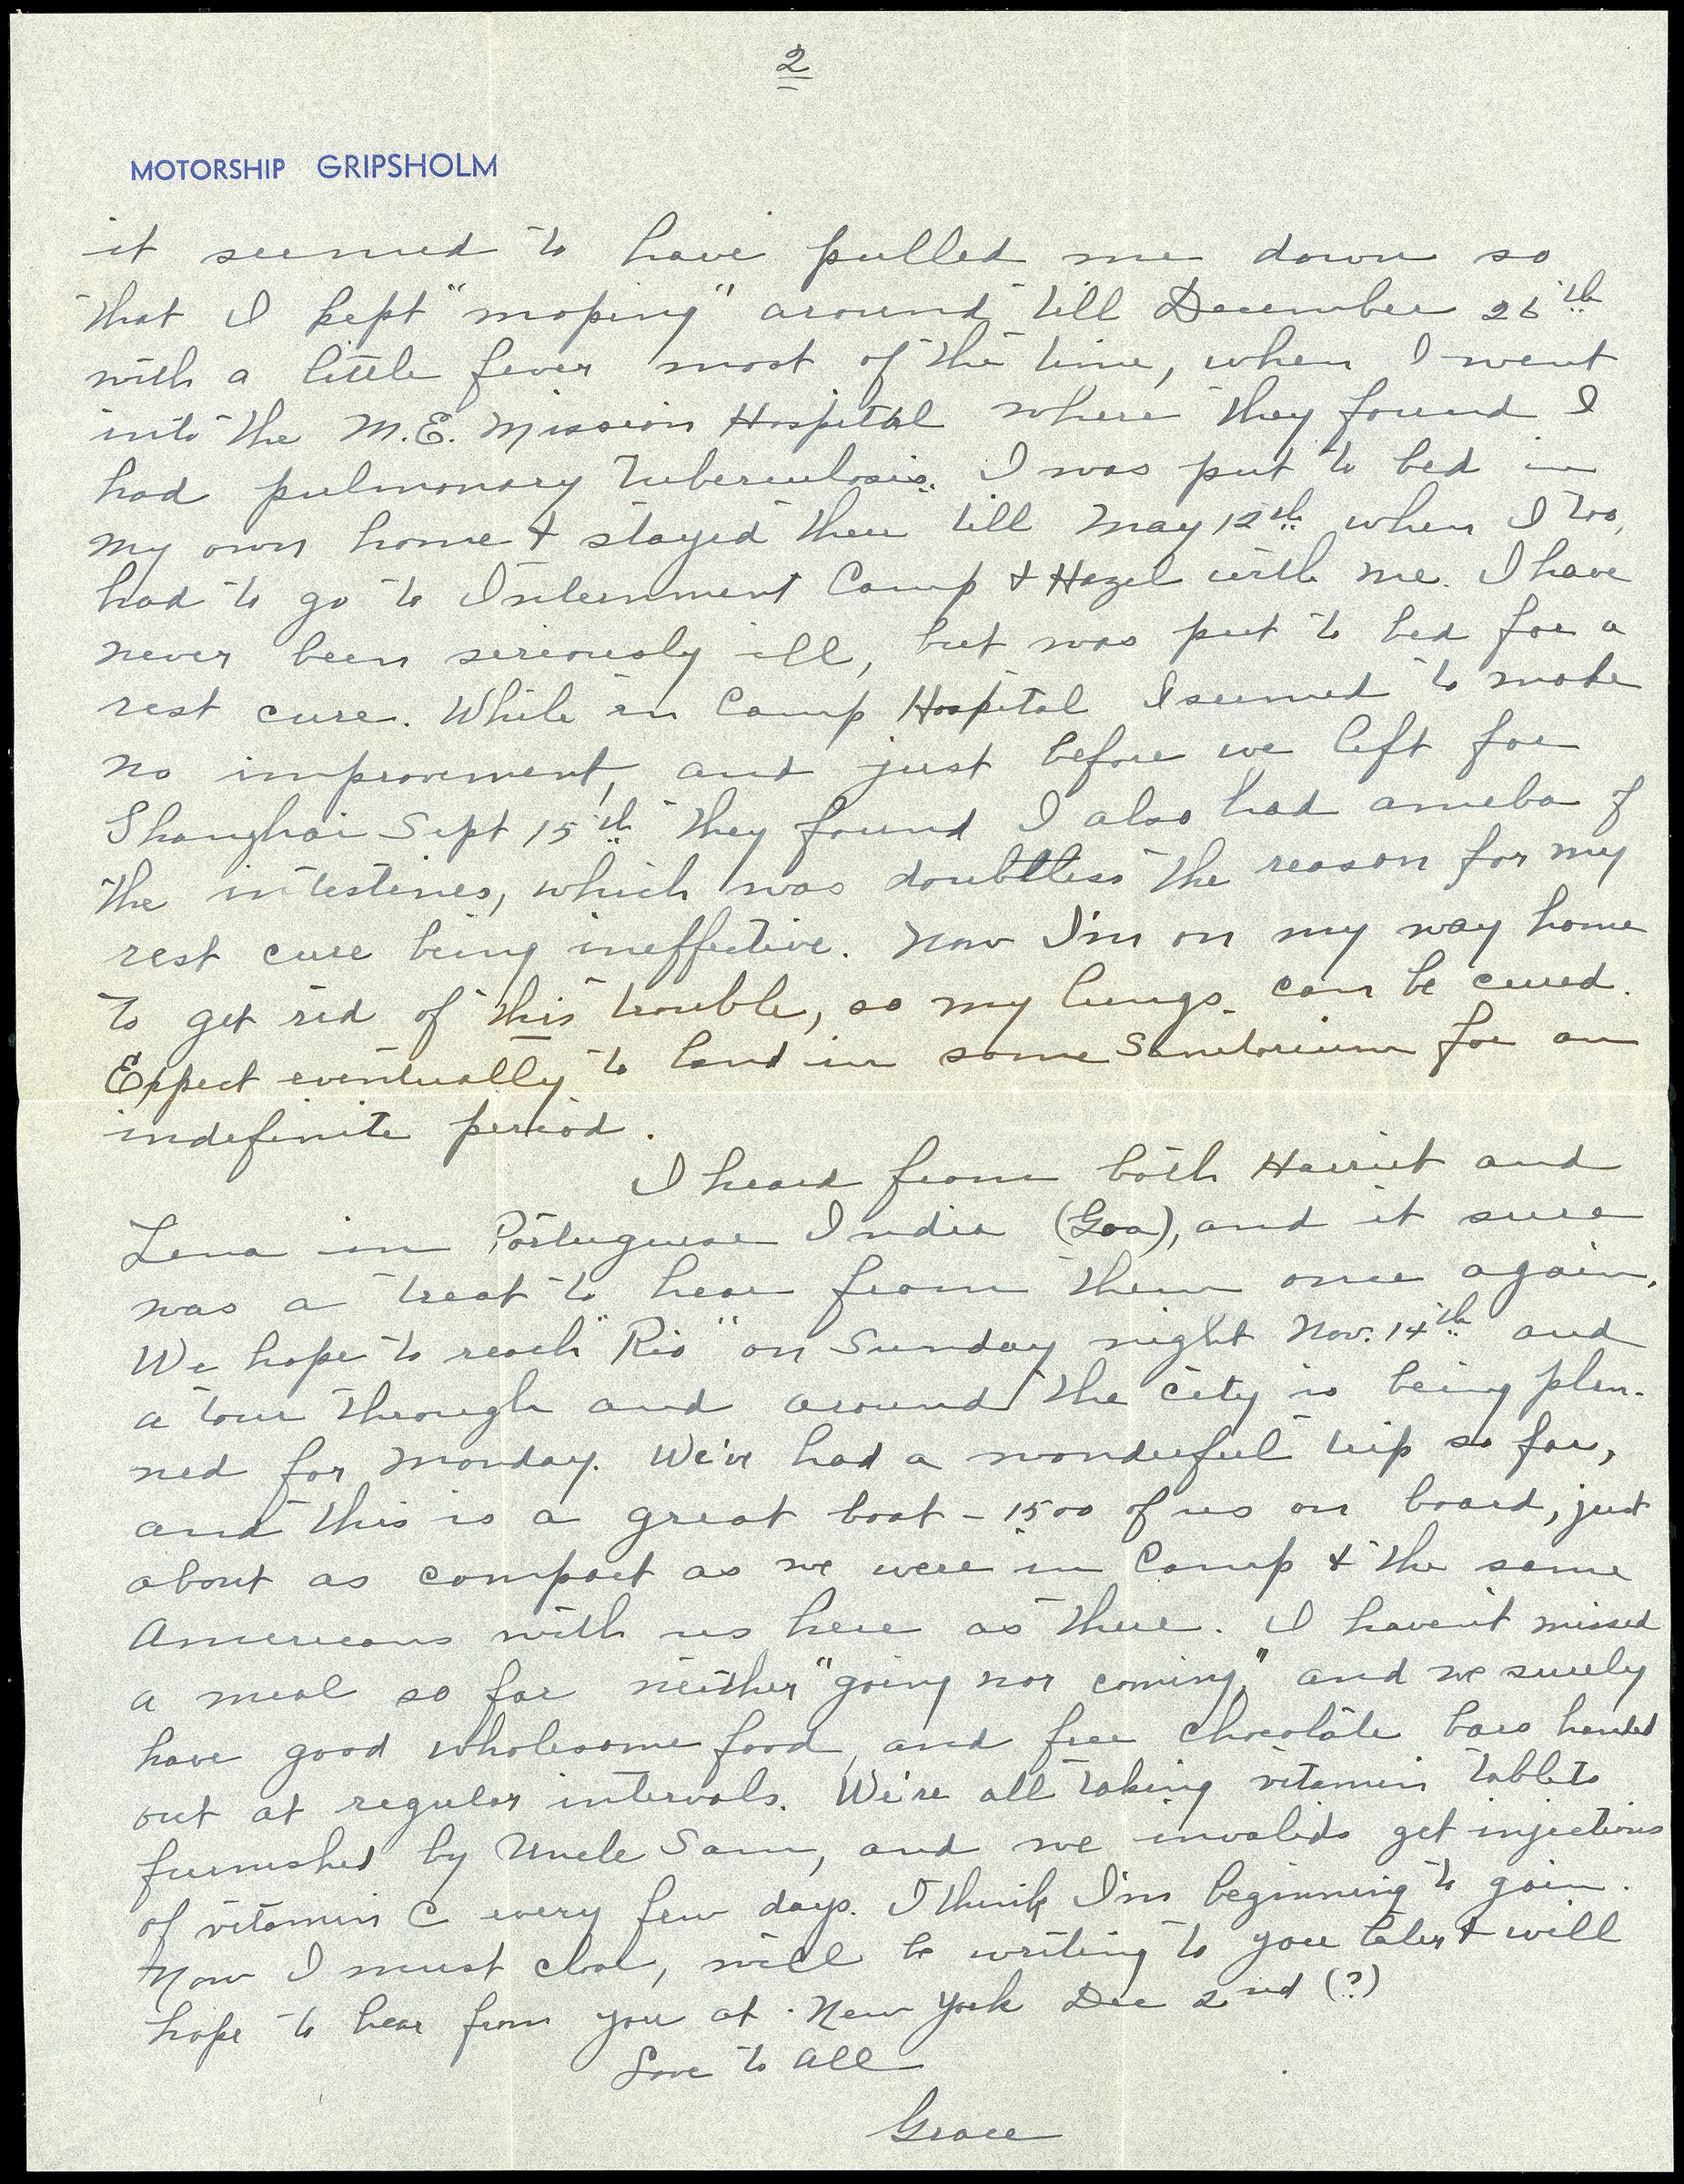 2
MOTORSHIP GRIPSHOLM
it seemed to have pulled me down so
that I kept "moping" around till December 26th
with a little fever most of the time, when I went
into the M.E. Mission Hospital where they found I
had pulmonary Tuberculosis. I was put to bed in
my own home & stayed there till May 12th when I too,
had to go to Internment Camp & Hazel with me. I have
never been seriously ill, but was put to bed for a
rest cure. While in Camp Hospital I seemed to make
no improvement, and just before we left for
Shanghai Sept 15th they found I also had ameba of
the intestines, which was doubtless the reason for my
rest cure being ineffective. Now I'm on my way home
to get rid of this trouble, so my lungs can be cured.
Expect eventually to land in some Sanitorium for an
indefinite period.
I heard from both Harriet and
Lena in Portuguese India (Goa), and it sure
was a treat to hear from them once again.
We hope to reach "Rio" on Sunday night Nov. 14th and
a tour through and around the city is being plan-
ned for Monday. We've had a wonderful trip so far,
and this is a great boat - 1500 of us on board, just
about as compact as we were in Camp & the same
Americans with us here as there. I haven't missed
a meal so far neither "going nor coming," and we surely
have good wholesome food, and free chocolate bars handed
out at regular intervals. We're all taking vitamin tablets
furnished by Uncle Sam, and we invalids get injections
of vitamin C every few days. I think I'm beginning to gain.
Now I must close, will be writing to you later & will
hope to hear from you at New York Dec 2nd (?)
Love to all
Grace